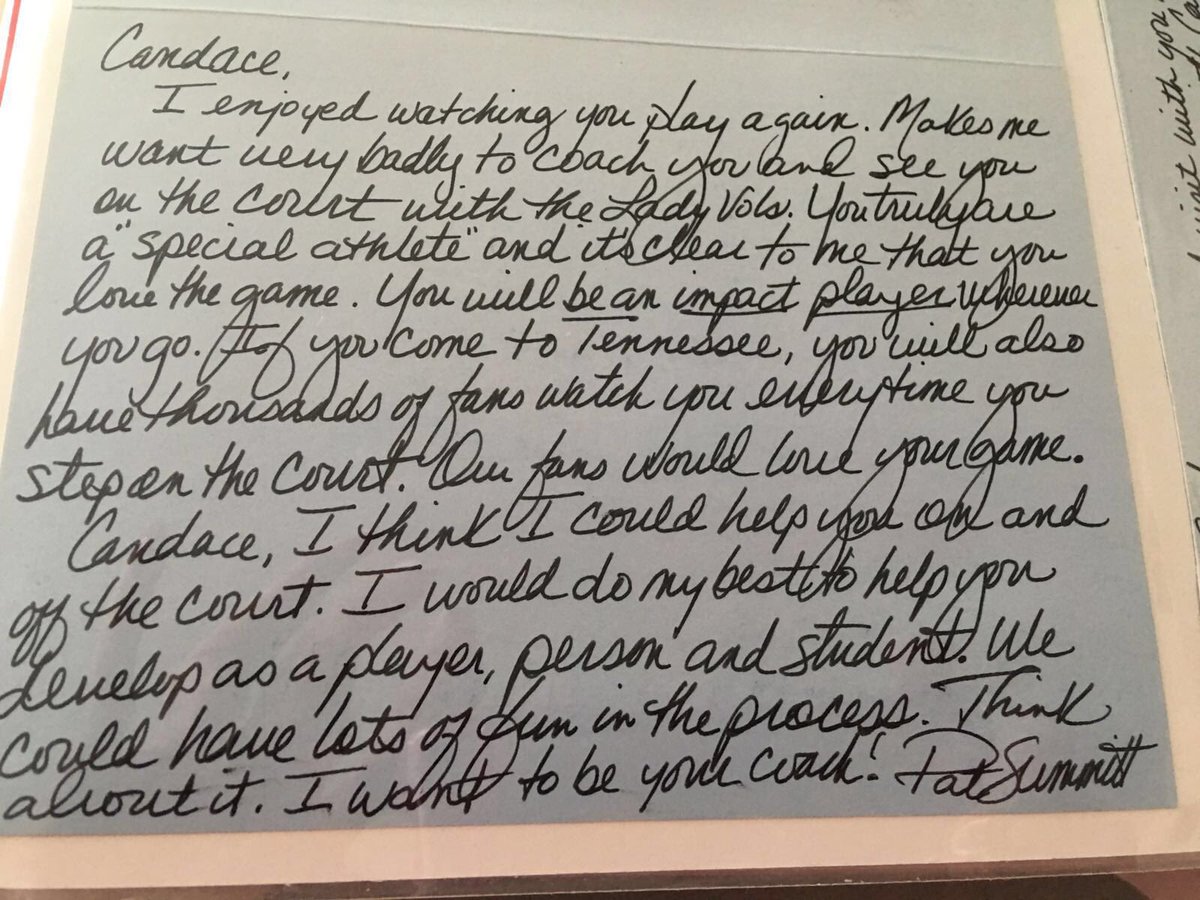 Candace,
I enjoyed watching you play again. Makes me
want very badly to coach you and see you
on the court with the Lady Vols. You truly are
a "special athlete" and it's clear to me that you
love the game. You will be an impact player wherever
you go. If you come to Tennessee, you will also
have thousands of fans watch you everytime you
step on the court. Our fans would love your game.
Candace, I think I could help you on and
off the court. I would do my best to help you
develop as a player, person and student. We
could have lots of fun in the process. Think
about it. I want to be your coach! Pat Summitt
visit with you